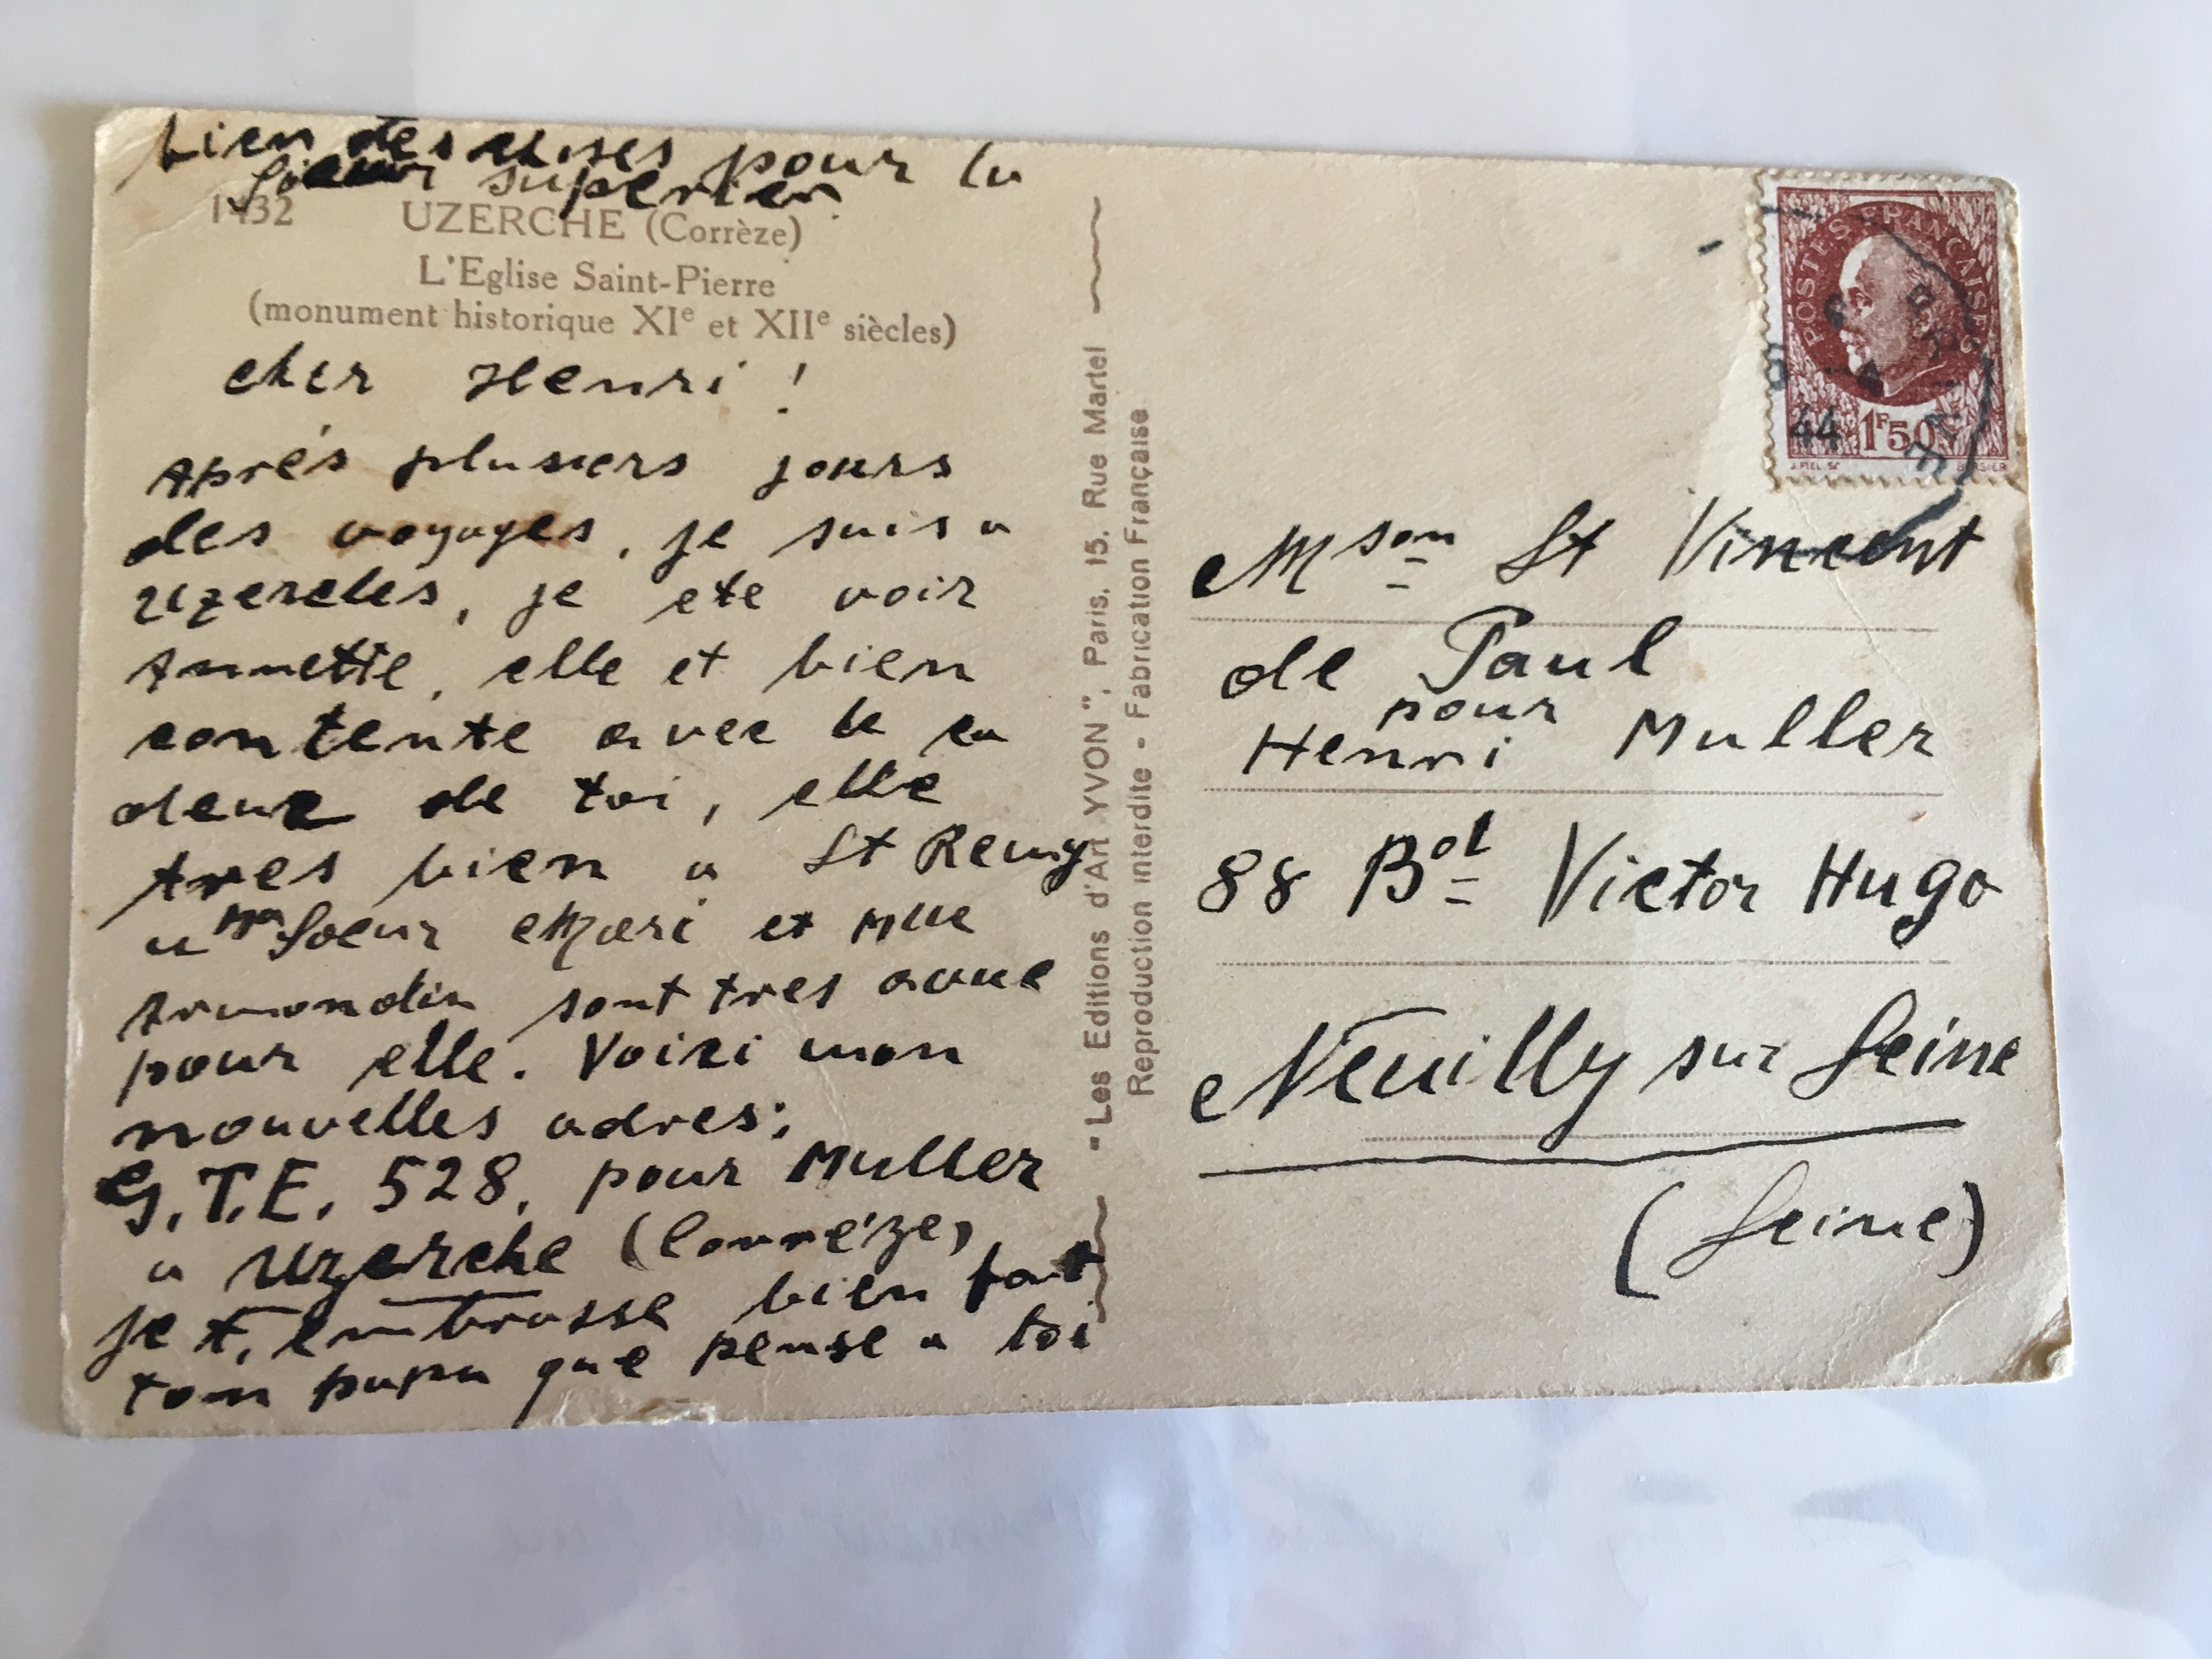 bien des choses pour la
Soeur superier
1432
UZERCHE (Corrèze)
L'Eglise Saint-Pierre
(monument historique XIe et XIIe siècles)
cher Henri !
Aprés plusiers jours
des voyages, je suis a
Uzerches, je ete voir
Annette, elle et bien
contente avec le ca
deux de toi, elle
tres bien a St Remy
Ma Soeur Mari et Mlle
Armondin sont tres
pour elle. Voici mon
nouvelles adres:
G.T.E. 528, pour Muller
a Uzerche (Corréze)
je t, embrasse bien fort
ton papa que pense a toi
"Les Editions d'Art YVON", Paris, 15, Rue Martel
Reproduction interdite - Fabrication Française
POSTES FRANÇAISES
44
1F50
J. PIEL Sc
BERSIER
Mson St Vincent
de Paul
pour
Henri Muller
88 Bd Victor Hugo
Neuilly sur Seine
(Seine)